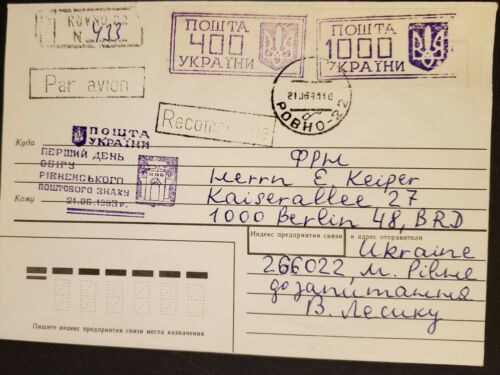 ROVNO 22
N 433
Par avion
ПОШТА
400
УКРАЇНИ
ПОШТА
1000
УКРАЇНИ
21.06
РОВНО-22
ПОШТА
УКРАЇНИ
ПЕРШИЙ ДЕНЬ
ОБІГУ
РІВНЕНСЬКОГО
ПОШТОВОГО ЗНАКУ
21.06.1993 р.
Куда
ФРН
Herrn E Keiper
Кому
Kaiserallee 27
1000 Berlin 48, BRD
Индекс предприятия связи и адрес отправителя
Ukraine
266022, м. Рівне
до запитання
В. Лесику
Пишите индекс предприятия связи места назначения